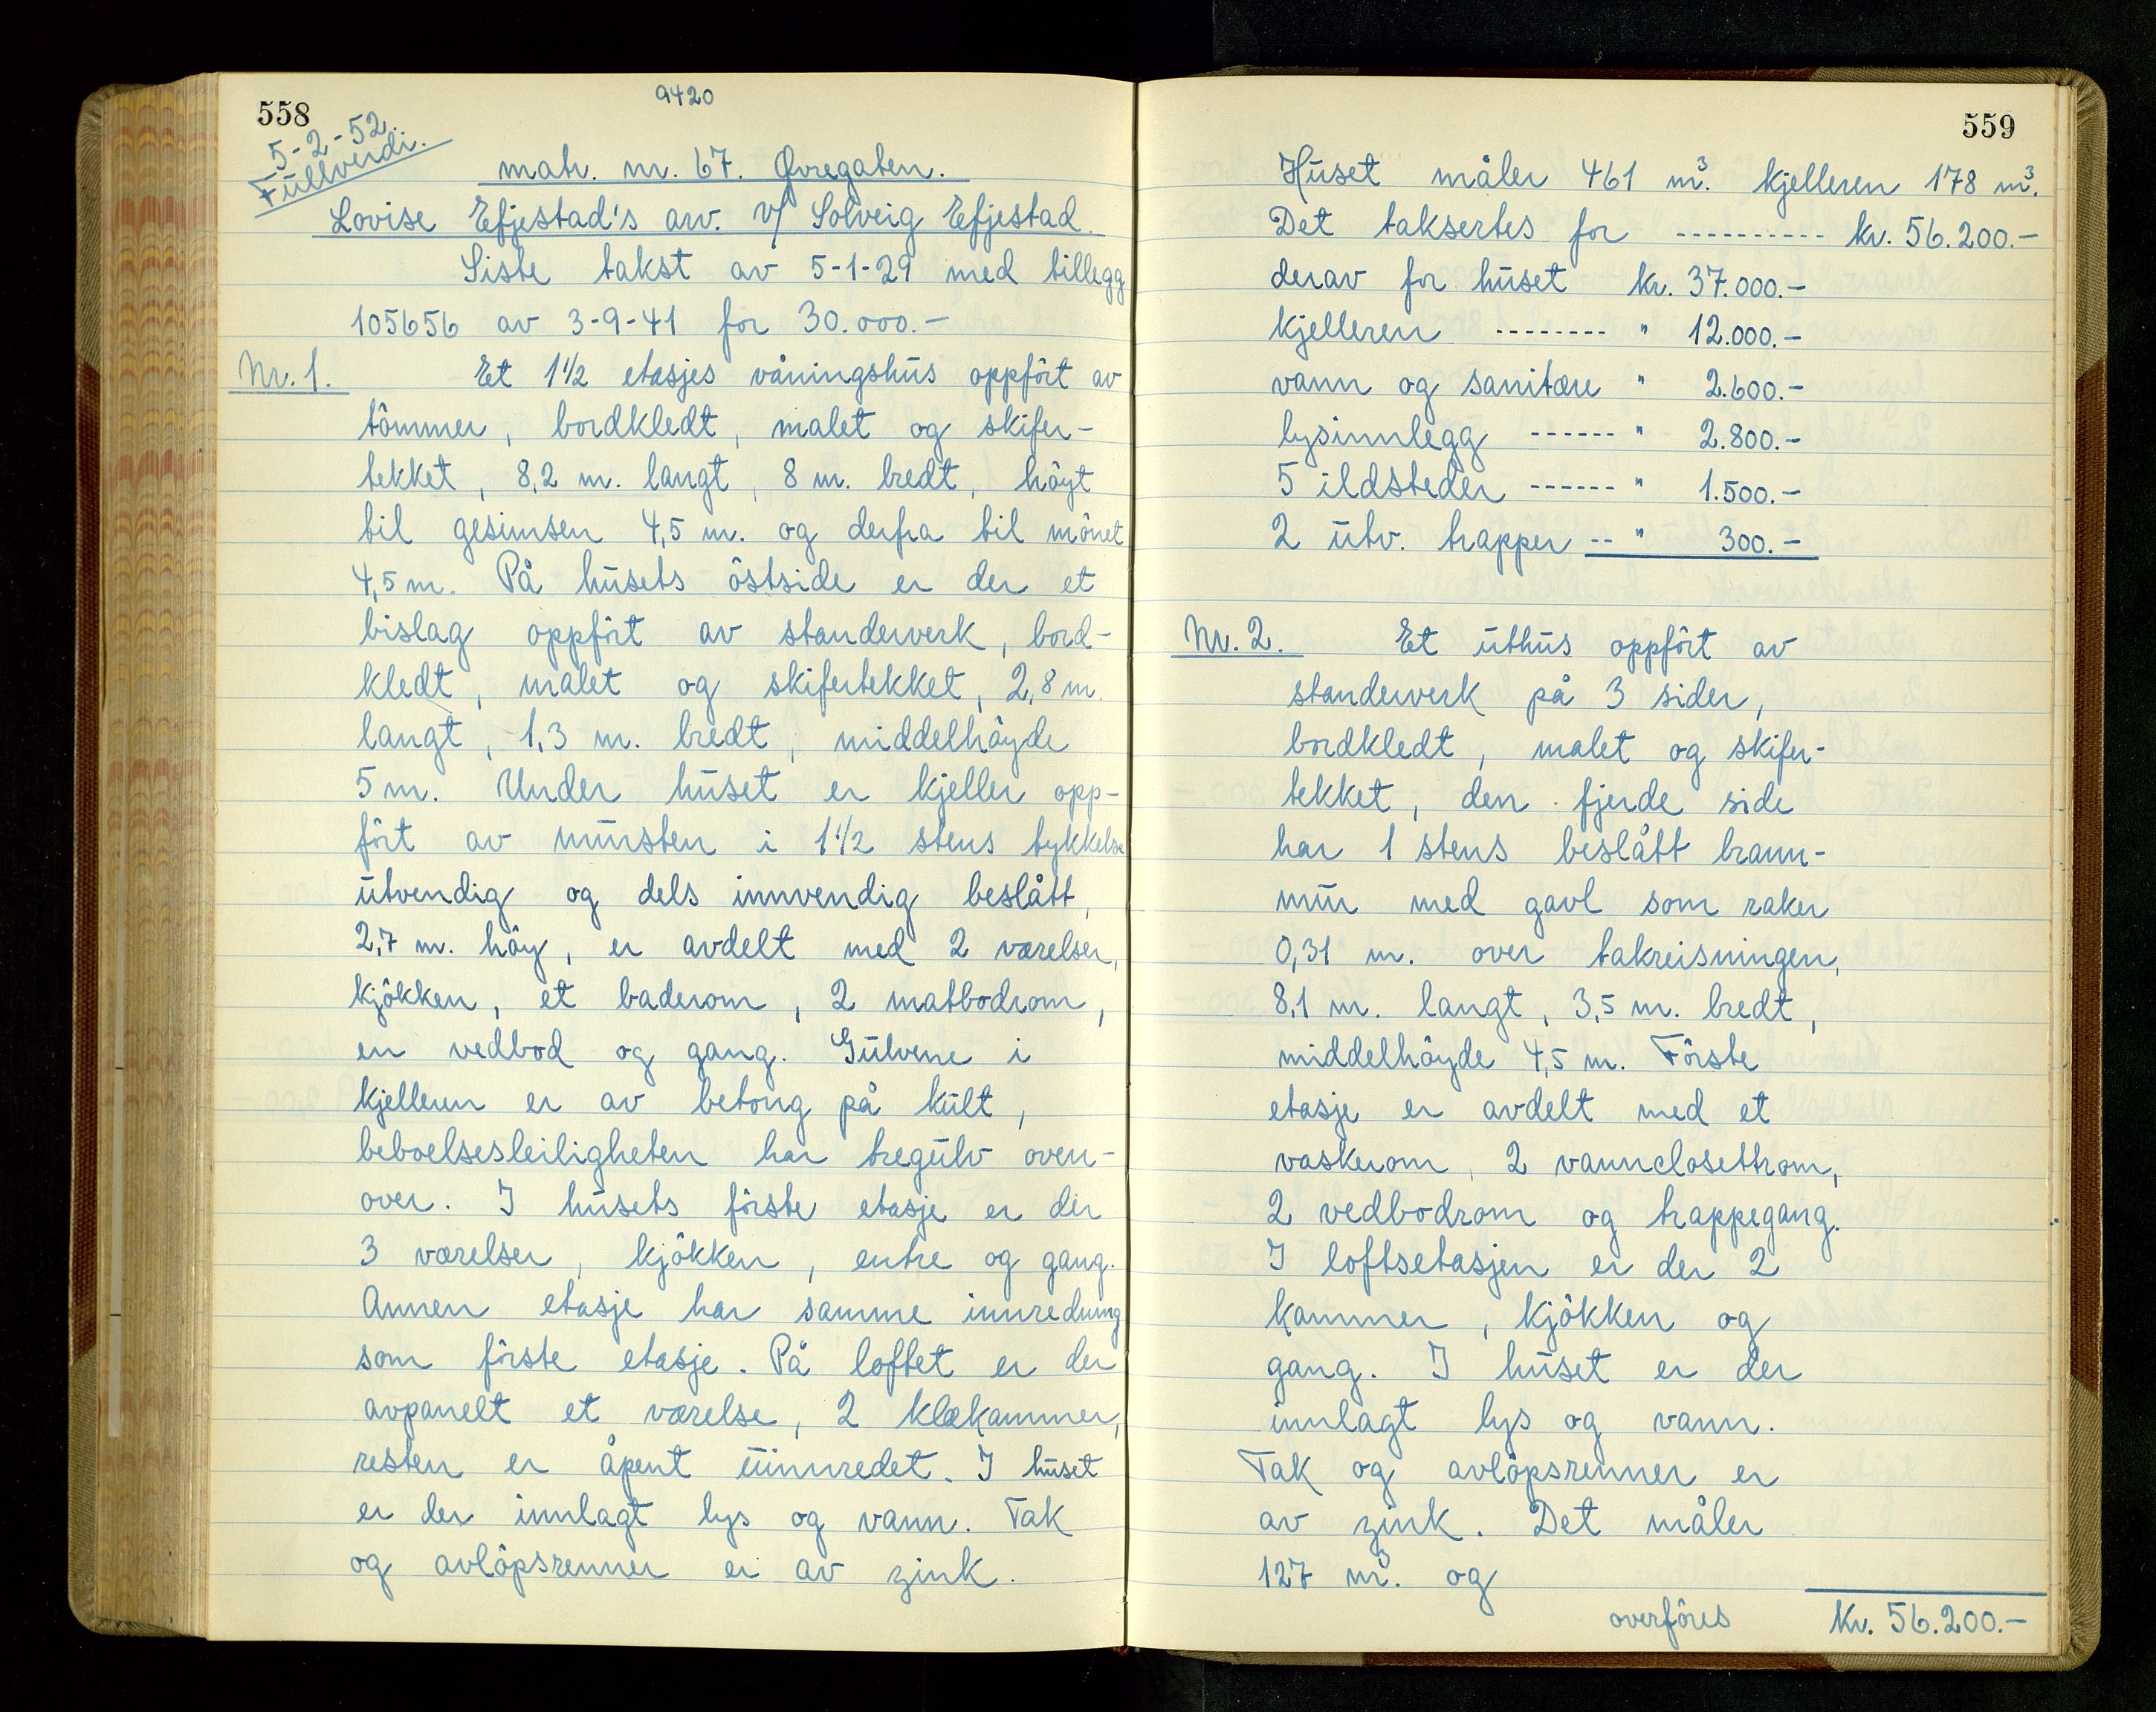 558
9420
5-2-52.
Fullverdi.
matr. nr. 67. Øvregaten.
Lovise Efjestad's arv. v/ Solveig Efjestad.
Siste takst av 5-1-29 med tillegg
105656 av 3-9-41 for 30.000.-
Nr. 1. Et 1½ etasjes våningshus oppfört av
tömmer, bordkledt, malet og skifer-
tekket, 8,2 m. langt, 8 m. bredt, höyt
til gesimsen 4,5 m. og derfra til mönet
4,5 m. På husets östside er der et
bislag oppfört av standerverk, bord-
kledt, malet og skifertekket, 2,8 m.
langt, 1,3 m. bredt, middelhöyde
5 m. Under huset er kjeller opp-
fört av mursten i 1½ stens tykkelse
utvendig og dels innvendig beslått,
2,7 m. höy, er avdelt med 2 værelser,
kjökken, et baderom, 2 matbodrom,
en vedbod og gang. Gulvene i
kjelleren er av betong på kult,
beboelsesleiligheten har tregulv oven-
over. I husets förste etasje er der
3 værelser, kjökken, entre og gang.
Annen etasje har samme innredning
som förste etasje. På loftet er der
avpanelt et værelse, 2 klækammer,
resten er åpent uinnredet. I huset
er der innlagt lys og vann. Tak
og avlöpsrenner er av zink.
559
Huset måler 461 m³. kjelleren 178 m³.
Det taksertes for ---------- kr. 56.200.-
derav for huset kr. 37.000.-
kjelleren -------- " 12.000.-
vann og sanitære " 2.600.-
lysinnlegg ------ " 2.800.-
5 ildsteder ------ " 1.500.-
2 utv. trapper -- " 300.-
Nr. 2. Et uthus oppfört av
standerverk på 3 sider,
bordkledt, malet og skifer-
tekket, den fjerde side
har 1 stens beslått brann-
mur med gavl som raker
0,31 m. over takreisningen,
8,1 m. langt, 3,5 m. bredt,
middelhöyde 4,5 m. Förste
etasje er avdelt med et
vaskerom, 2 vannclosettrom,
2 vedbodrom og trappegang.
I loftsetasjen er der 2
kammer, kjökken og
gang. I huset er der
innlagt lys og vann.
Tak og avlöpsrenner er
av zink. Det måler
127 m³. og
overföres kr. 56.200.-